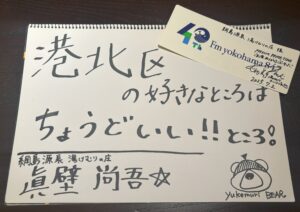 港北区
の好きなところは
ちょうどいい!!ところ!
綱島源泉 湯けむりの庄
眞壁 尚吾☆
yukemuri BEAR
綱島源泉 湯けむりの庄 様
40th
Fm yokohama 84.7